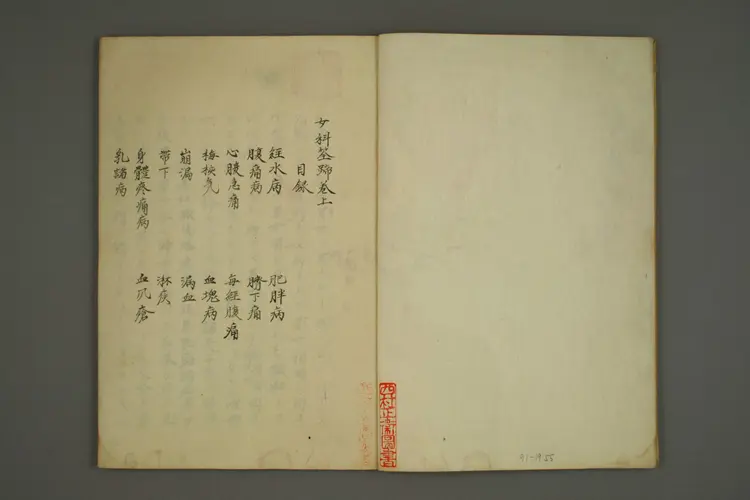 女科荃蹄卷上
目録
經水病 肥胖病
腹痛病 臍下痛
心腹急痛 每經腹痛
梅核氣 血塊病
崩漏 漏血
帶下 淋疾
身體疼痛病 血風瘡
乳諸病
91-1955